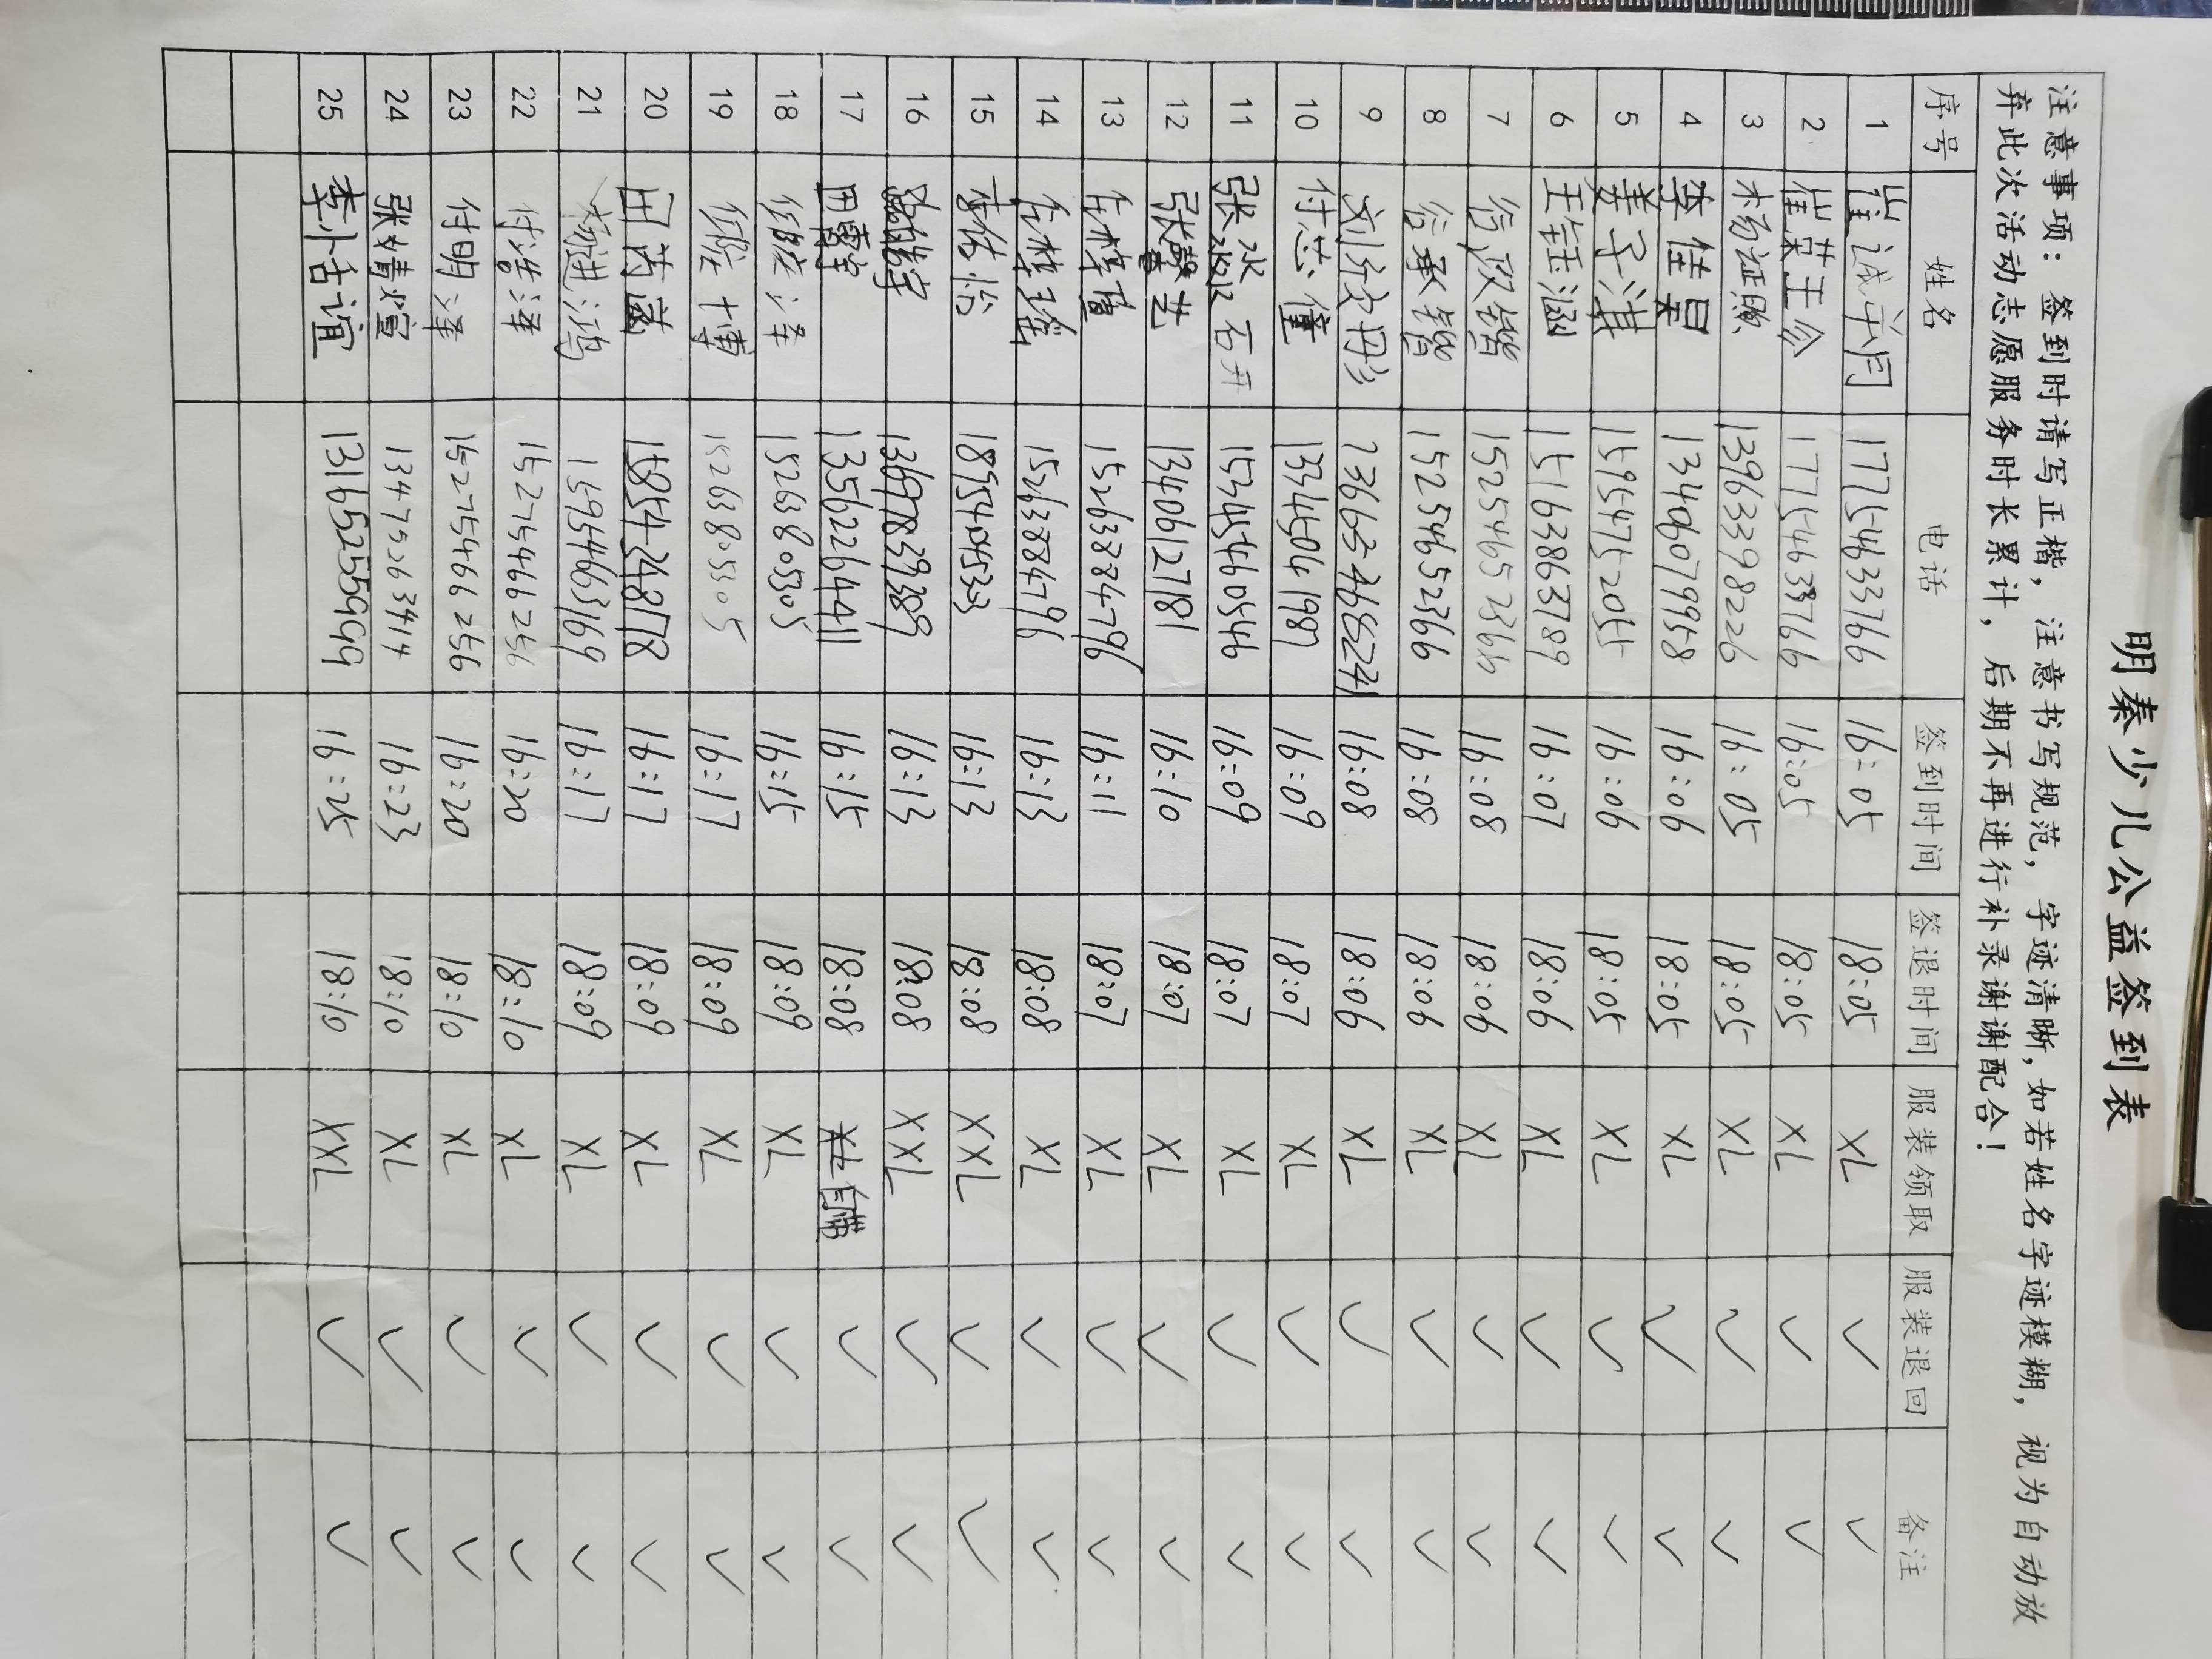 明秦少儿公益签到表
注意事项：签到时请写正楷，注意书写规范，字迹清晰，如若姓名字迹模糊，视为自动放
弃此次活动志愿服务时长累计，后期不再进行补录谢谢配合！
序号 姓名 电话 签到时间 签退时间 服装领取 服装退回 备注
1 崔诚 17754633766 16:05 18:05 XL ✓ ✓
2 崔荣 17754633766 16:05 18:05 XL ✓ ✓
3 杨证照 13963398226 16:05 18:05 XL ✓ ✓
4 李佳昊 13406079958 16:06 18:05 XL ✓ ✓
5 姜子淇 15954752055 16:06 18:05 XL ✓ ✓
6 王钰涵 15163863789 16:07 18:06 XL ✓ ✓
7 15254652366 16:08 18:06 XL ✓ ✓
8 15254652366 16:08 18:06 XL ✓ ✓
9 16:08 18:06 XL ✓ ✓
10 付芯僮 13345041987 16:09 18:07 XL ✓ ✓
11 15345460546 16:09 18:07 XL ✓ ✓
12 张馨艺 13406127181 16:10 18:07 XL ✓ ✓
13 15263884796 16:11 18:07 XL ✓ ✓
14 15263884796 16:13 18:08 XL ✓ ✓
15 16:13 18:08 XXL ✓ ✓
16 16:13 18:08 XXL ✓ ✓
17 13562264411 16:15 18:08 自带 ✓ ✓
18 15263805305 16:15 18:09 XL ✓ ✓
19 15263805305 16:17 18:09 XL ✓ ✓
20 16:17 18:09 XL ✓ ✓
21 15954663169 16:17 18:09 XL ✓ ✓
22 15275466256 16:20 18:10 XL ✓ ✓
23 付明泽 15275466256 16:20 18:10 XL ✓ ✓
24 张婧煊 13475263414 16:23 18:10 XL ✓ ✓
25 李小恬谊 13165255999 16:25 18:10 XXL ✓ ✓